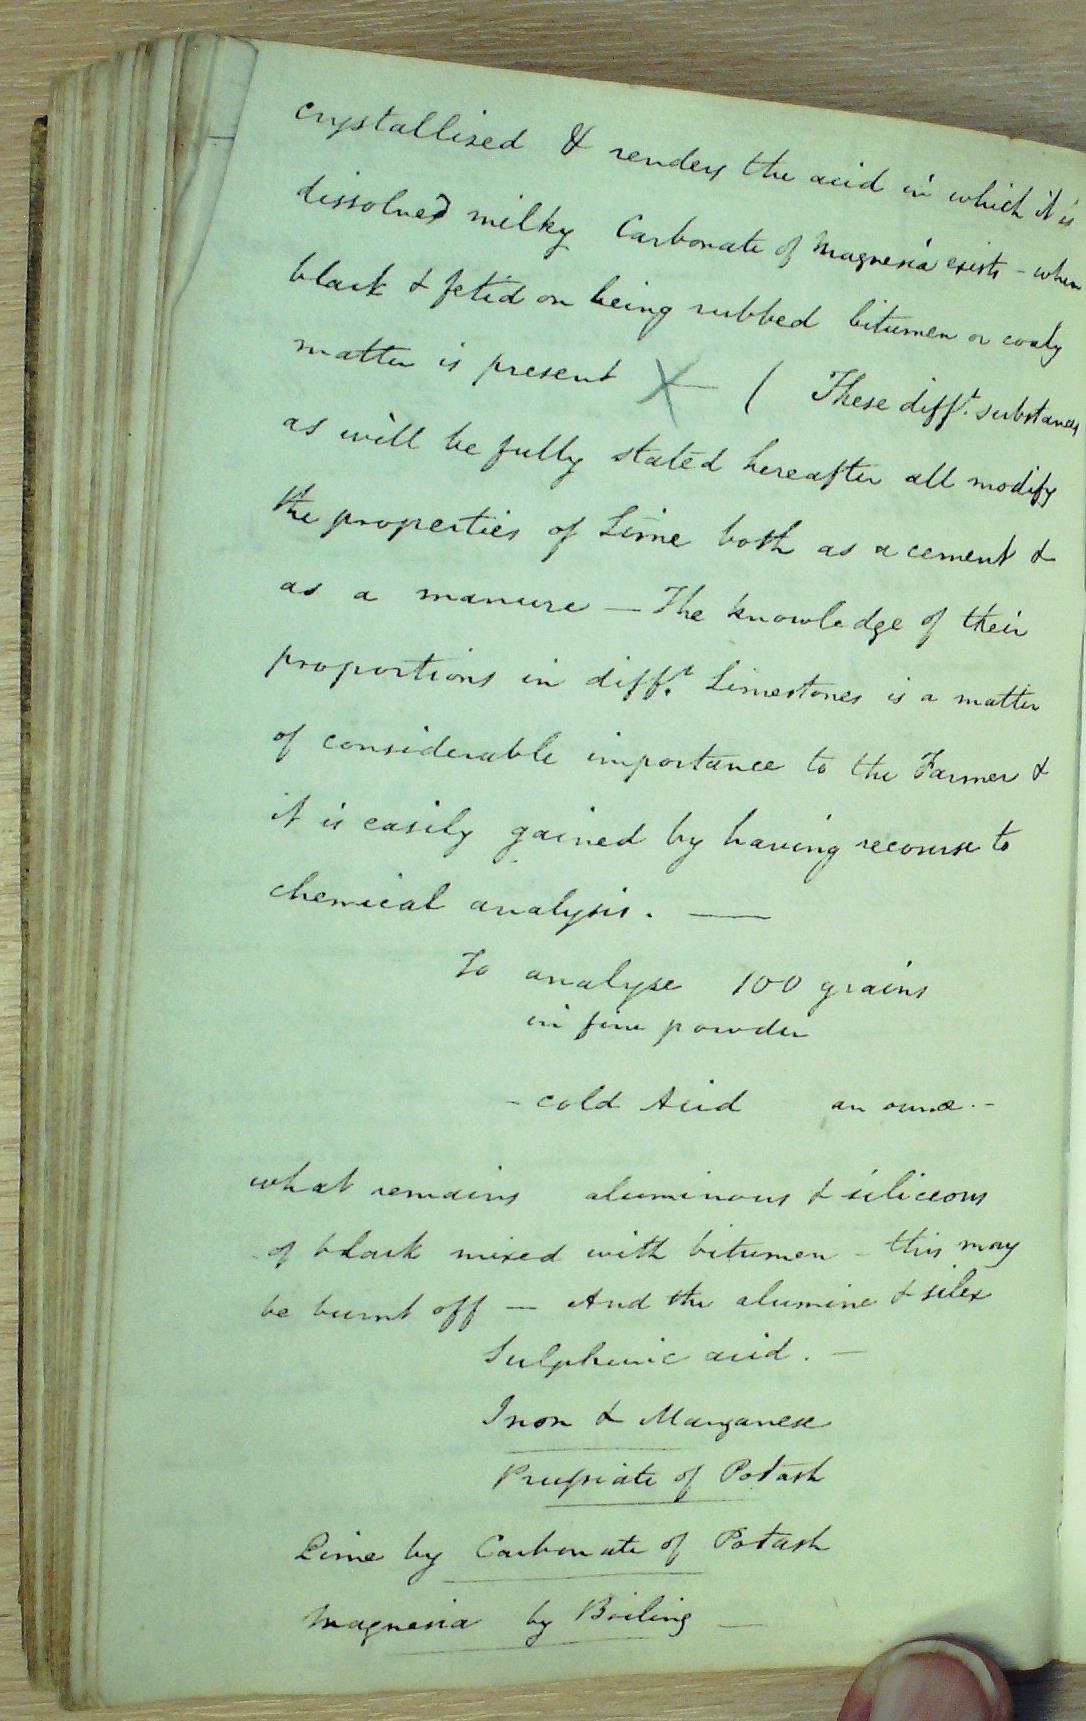 crystallized & renders the acid in which it is
dissolved milky Carbonate of Magnesia exists - when
black & fetid on being rubbed bitumen or coaly
matter is present X — ( These diff.t substances
as will be fully stated hereafter all modify
the properties of Lime both as a cement &
as a manure — The knowledge of their
proportions in diff.t Limestones is a matter
of considerable importance to the Farmer &
it is easily gained by having recourse to
chemical analysis. —
To analyse 100 grains
in fine powder
- cold Acid an ounce. -
what remains aluminous & siliceous
if black mixed with bitumen - this may
be burnt off — And the alumine & silex
Sulphuric acid. —
Iron & Manganese
Prussiate of Potash
Lime by Carbonate of Potash
Magnesia by Boiling —